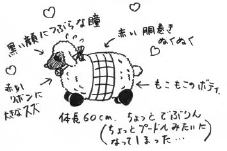 黒い顔につぶらな瞳
赤い胴巻き
ぬくぬく
赤い
リボンに
大きなスズ
もこもこのボディ
体長60cm. ちょっとでぶりん
(ちょっとプードルみたいに
なってしまった…)